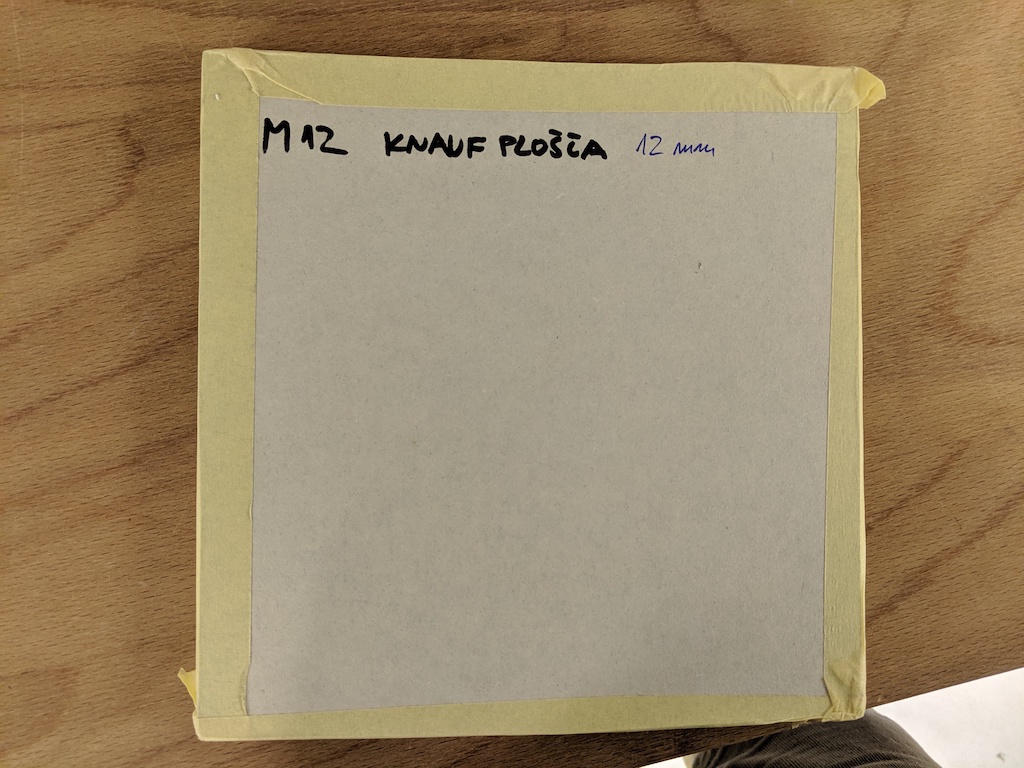 M12 KNAUF PLOŠČA 12 mm